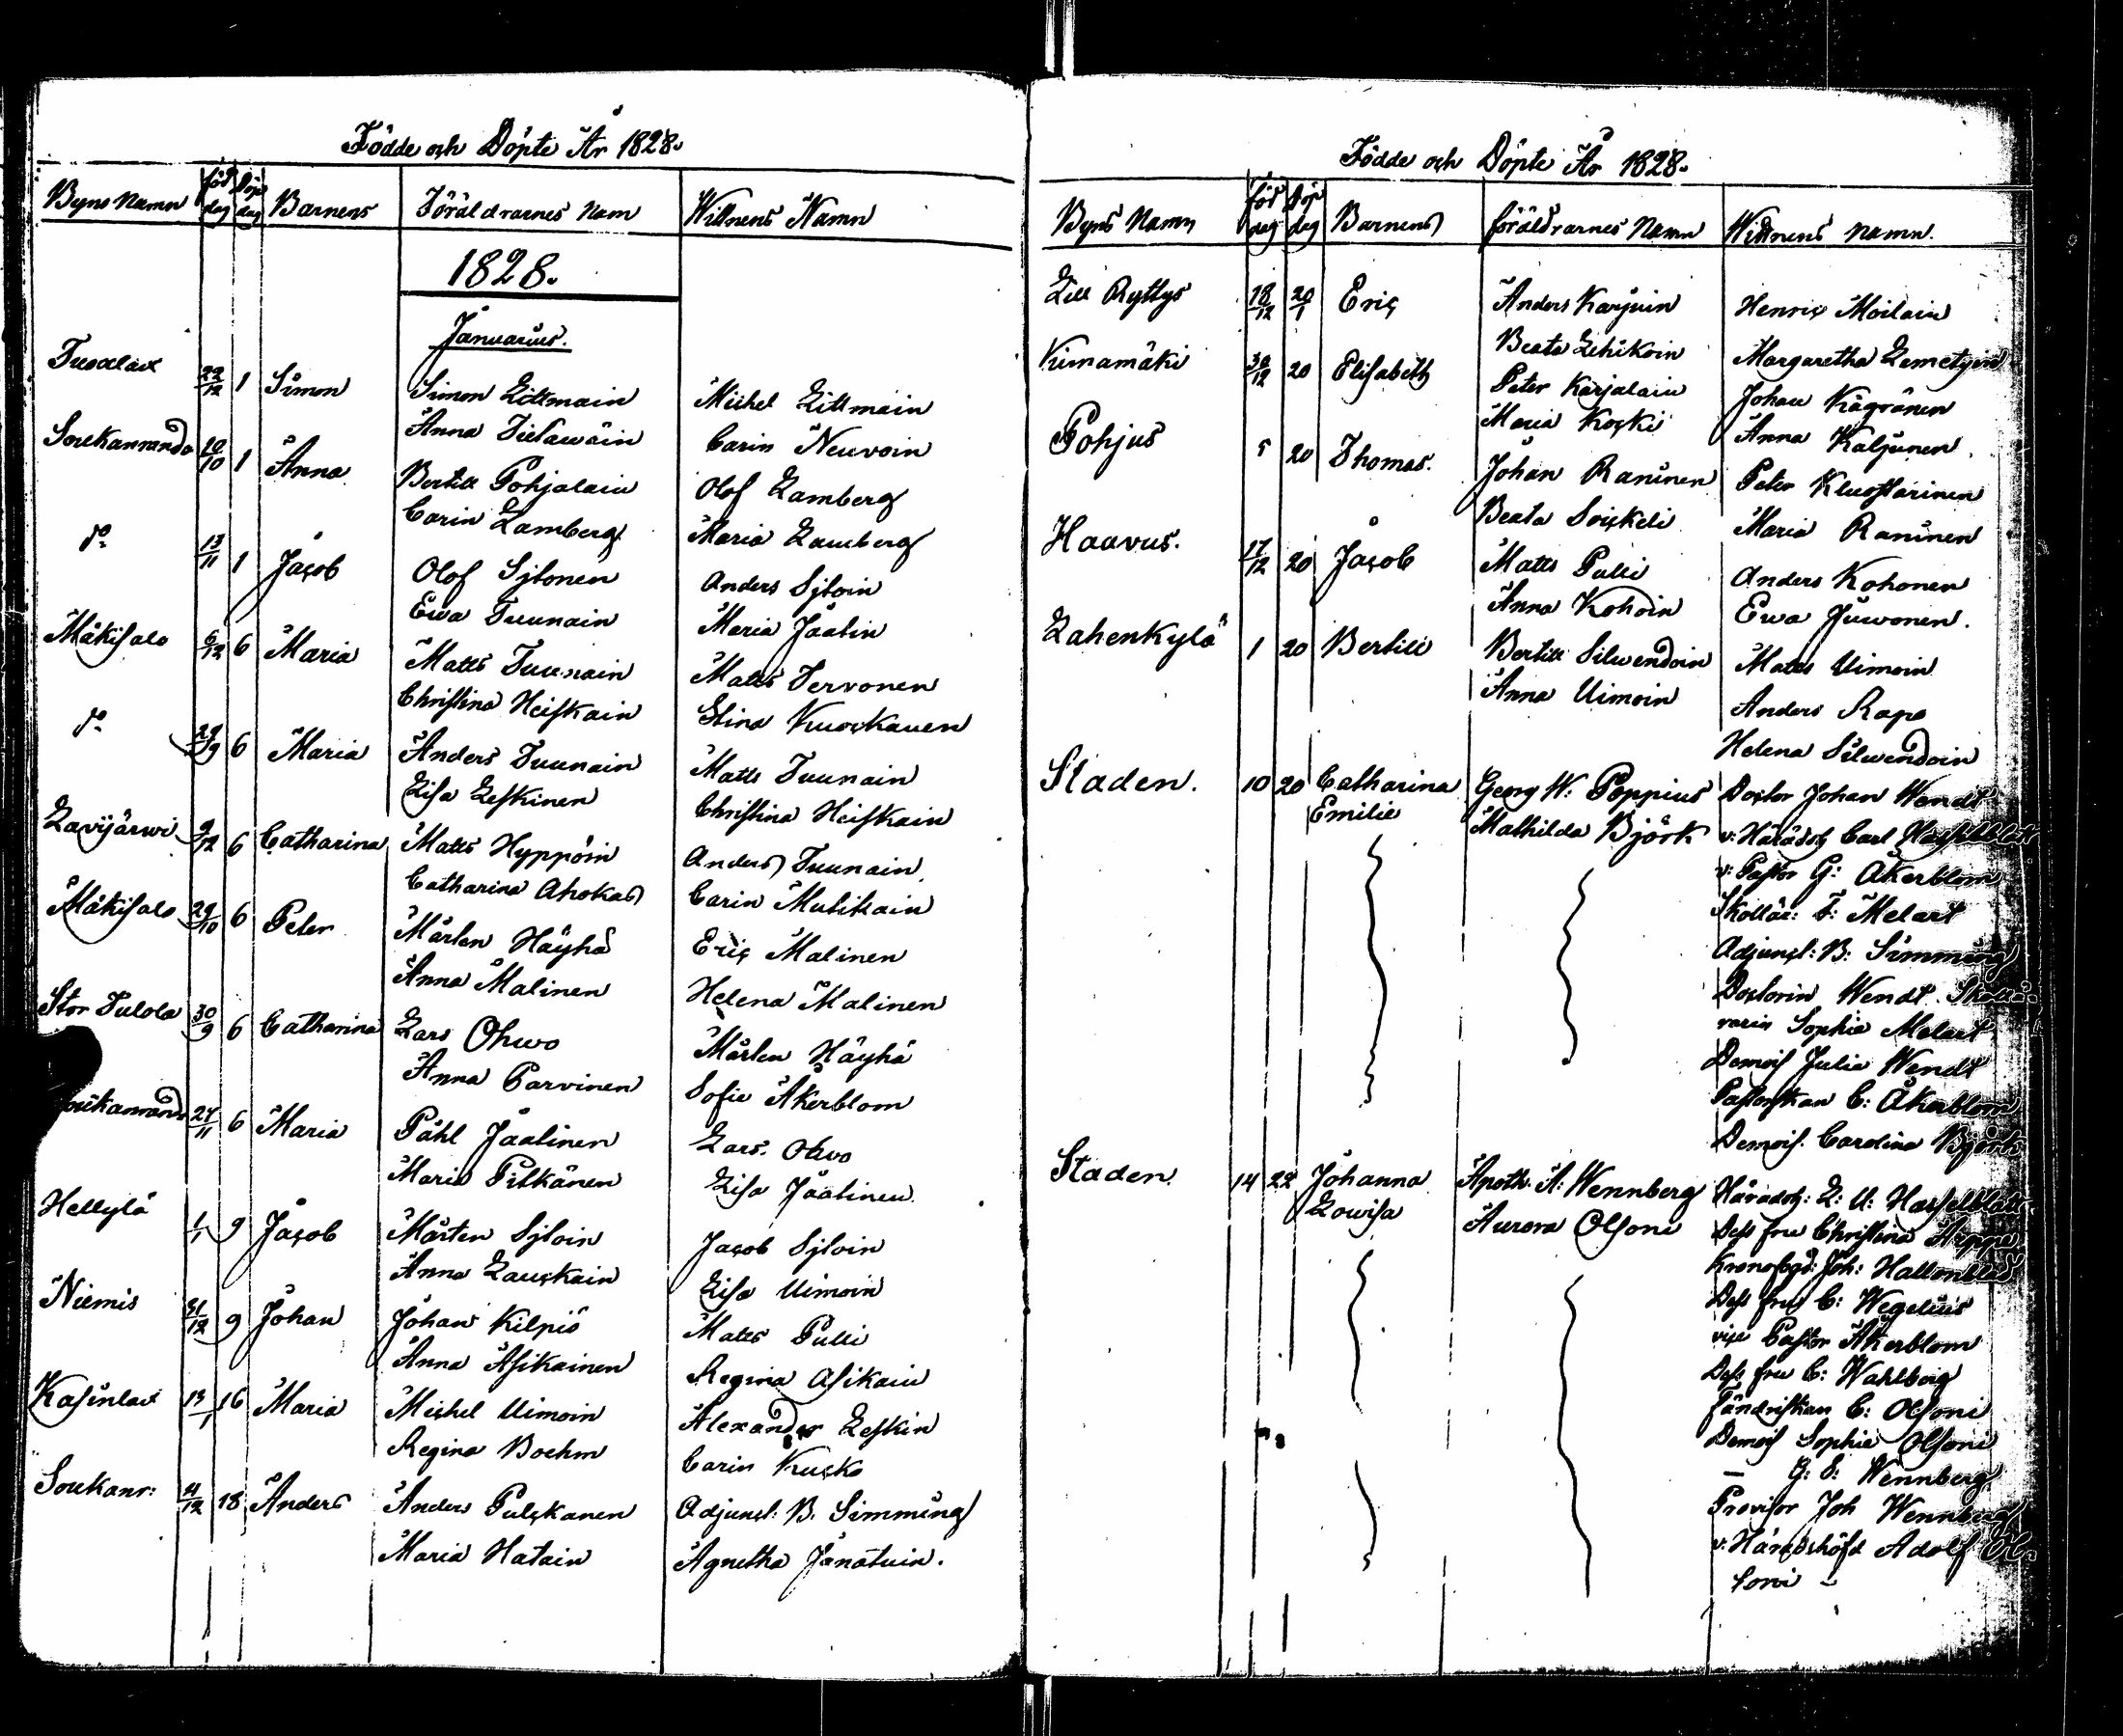 Födde och Döpte År 1828.
Byns Namn föd dag Döp dag Barnens Föräldrarnes Namn Wittnens Namn
1828.
Januarius.
22/12 1 Simon Simon Littmain Michel Littmain
Anna Tietäwäin Carin Neuvoin
Soukanranda 20/10 1 Anna Bertill Pohjalain Olof Lamberg
Carin Lamberg Maria Lamberg
do 13/11 1 Jacob Olof Sjlonen Anders Sjloin
Ewa Tuunain Maria Jäälin
Mäkisalo 6/12 6 Maria Matts Tuunain Matts Tervonen
Christina Heiskain Stina Kuockanen
do 29/9 6 Maria Anders Tuunain Matts Tuunain
Lisa Leskinen Christina Heiskain
Lavijärwi 9/12 6 Catharina Matts Hyppöin Anders Tuunain
Catharina Ahokas Carin Mutikain
Mäkisalo 29/10 6 Peter Mårten Häyhä Eric Malinen
Anna Malinen Helena Malinen
Stor Tulola 30/9 6 Catharina Lars Ohwo Mårten Häyhä
Anna Parvinen Sofie Åkerblom
oukanranda 27/11 6 Maria Påhl Jäälinen Lars Ohvo
Maria Pitkänen Lisa Jäälinen
Hellylä 1/1 9 Jacob Mårten Sjloin Jacob Sjloin
Anna Lauckain Lisa Uimoin
Niemis 31/12 9 Johan Johan Kilpiö Matts Pulli
Anna Asikainen Regina Asikain
Kasinlax 13/1 16 Maria Michel Uimoin Alexander Leskin
Regina Boehm Carin Kucko
Soukanr: 21/12 18 Anders Anders Pulckanen Adjunct: B. Simming
Maria Hatain Agnetha Jänätuin.
Födde och Döpte År 1828.
Byns Namn föd dag Döp dag Barnens föräldrarnes Namn Wittnens namn.
Lill Ryttys 18/12 20/1 Eric Anders Karjuin Henric Moilain
Beata Lihikoin Margaretha Lemetyin
Kimamäki 30/12 20 Elisabeth Peter Karjalain Johan Kägränen
Maria Kocki Anna Kaljunen
Pohjus 5 20 Thomas. Johan Raninen Peter Kluostarinen
Beata Soickeli Maria Raninen
Haavus. 17/12 20 Jacob Matts Pulli Anders Kohonen
Anna Kohoin Ewa Juwonen.
Lahenkylä 1 20 Bertill Bertill Silwendoin Matts Uimoin
Anna Uimoin Anders Rapo
Helena Silwendoin
Staden. 10 20 Catharina Georg W: Poppius Doctor Johan Wendt
Emilie Mathilda Björk v: Häradsh Carl
v: Pastor G: Åkerblom
Skollär: F: Melart
Adjunct: B: Simming
Doctorin Wendt Skollä-
rarin Sophie Melart
Demois Julie Wendt
Pastorskan C: Åkerblom
Demois. Carolina Björk
Staden. 14 22 Johanna Apoth: A: Wennberg Häradsh: L: U: Hasselblatt
Lowisa Aurora Olsoni Dess fru Christina Arppe
Kronofogd: Joh: Hallonblad
Dess fru C: Wegelius
vice Pastor Åkerblom
Dess fru C: Wahlberg
Fändrikskan C: Olsoni
Demois Sophie Olsoni
— G: E: Wennberg
Provisor Joh Wennberg
v: Häradshöfd Adolf Ol-
soni